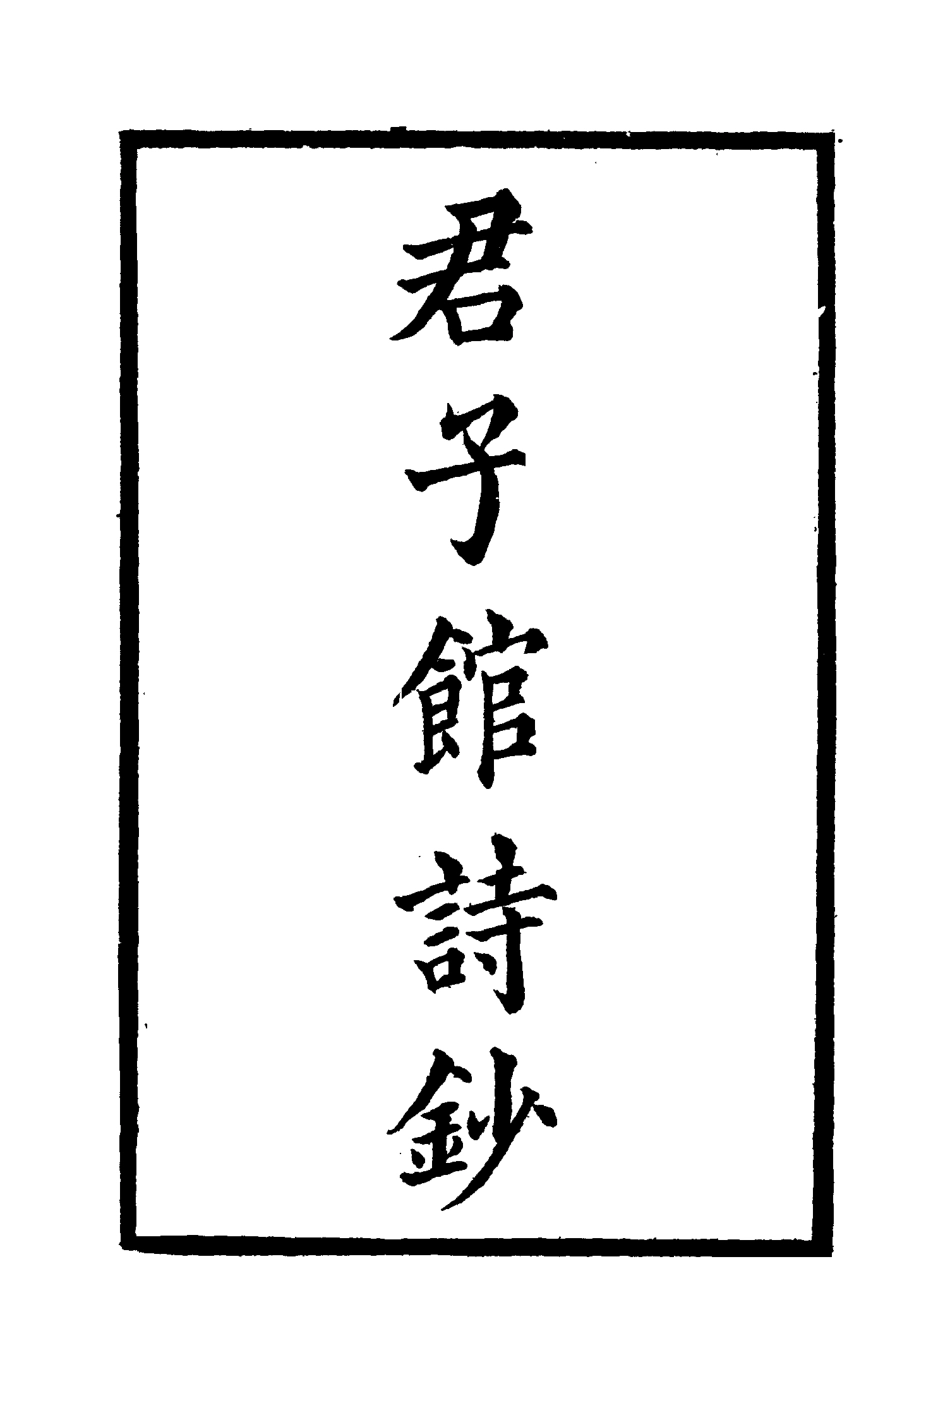 君子館詩鈔